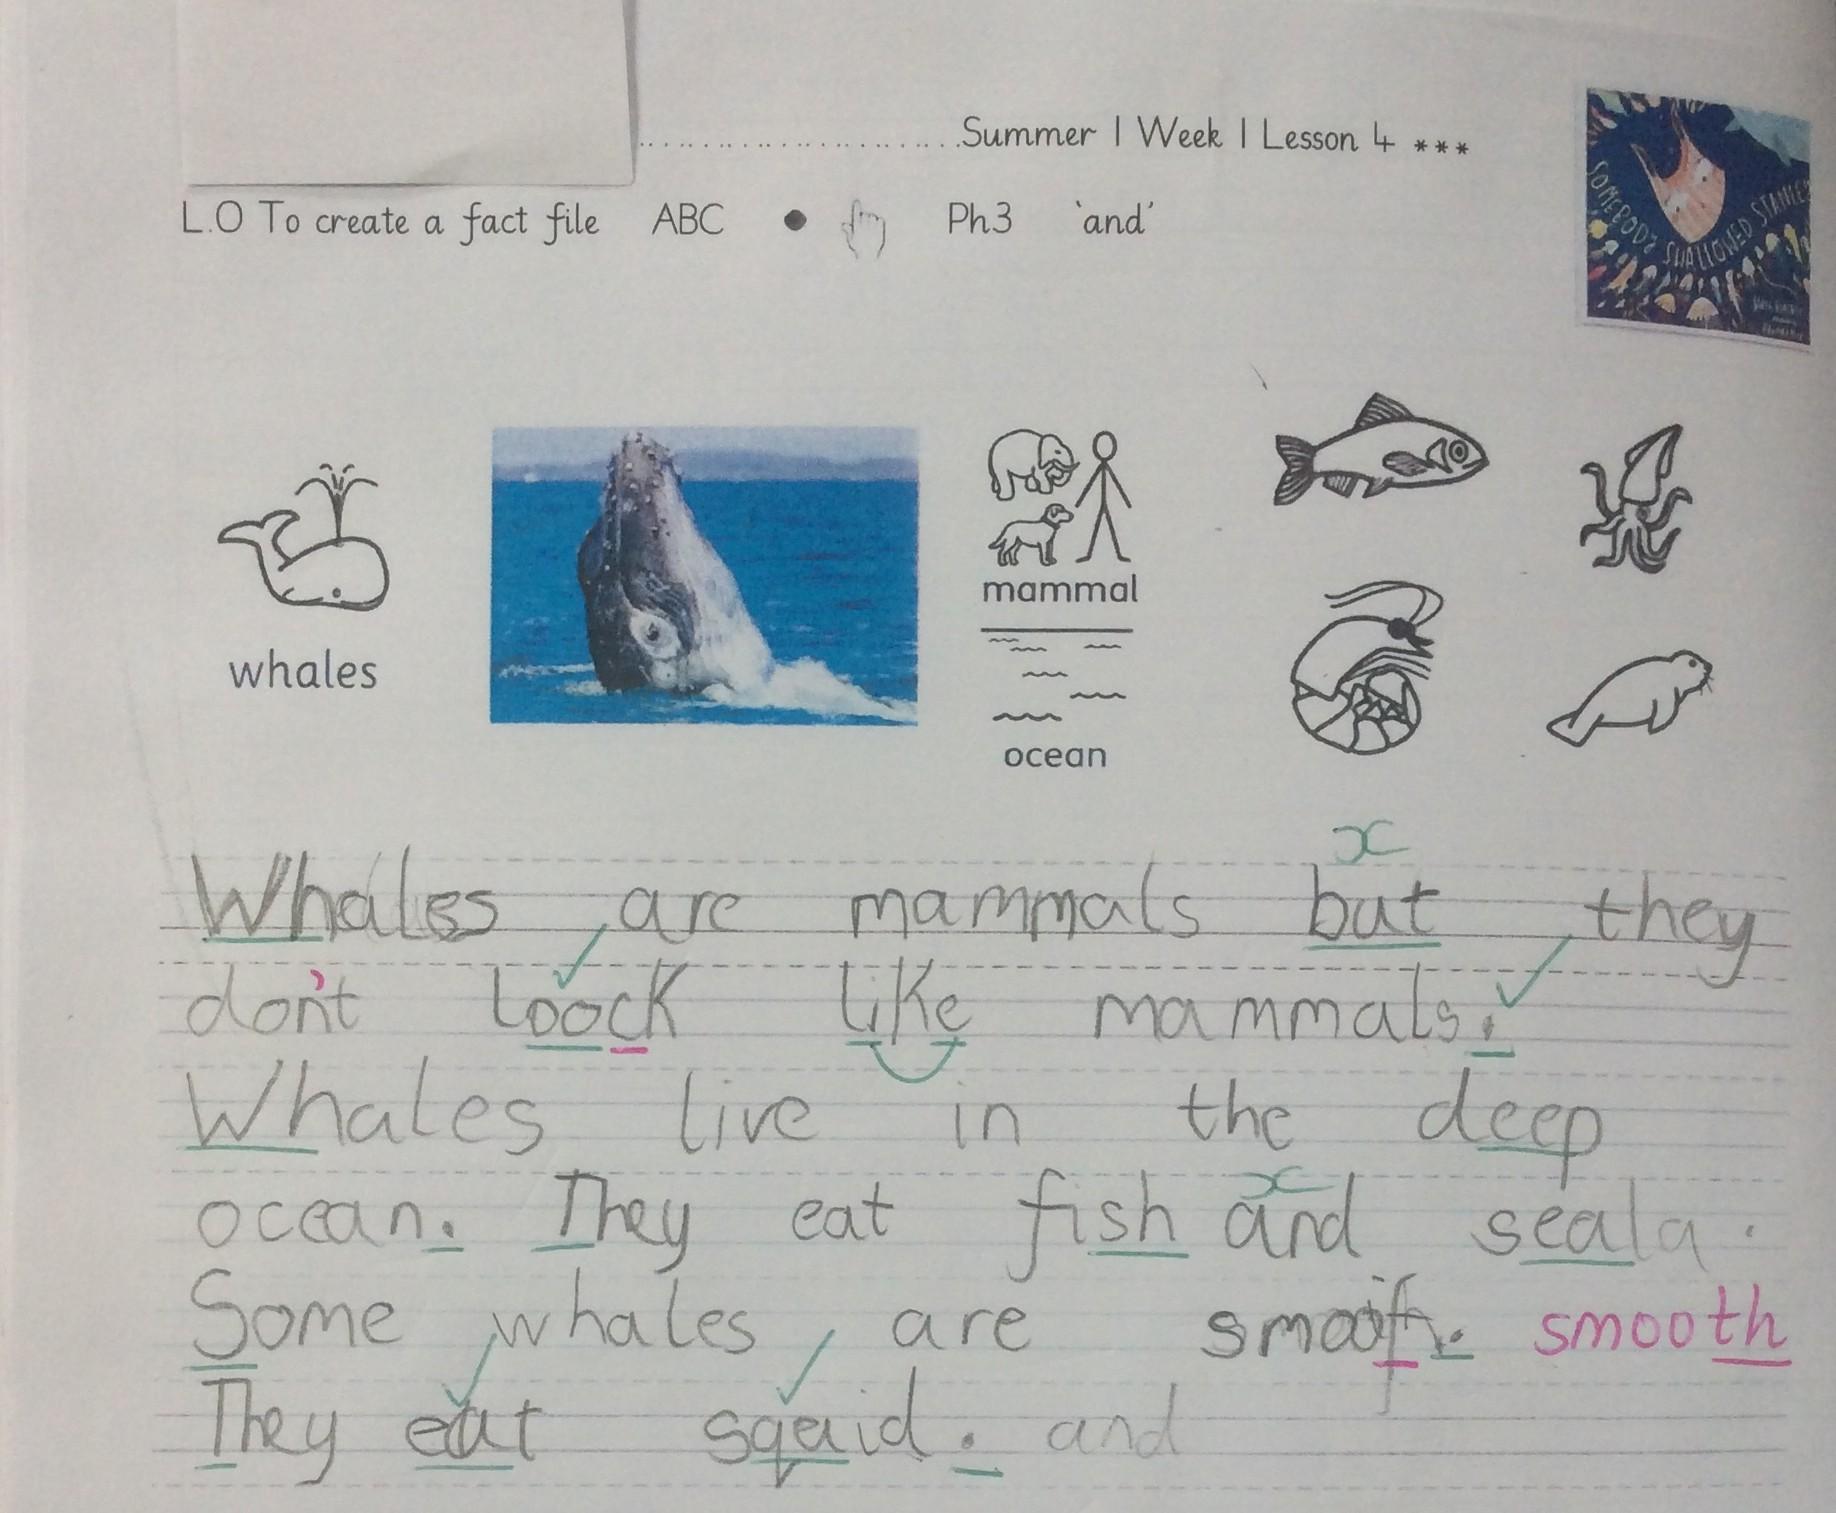 Summer 1 Week 1 Lesson 4 ***
L.O To create a fact file ABC • Ph3 'and'
SOMEBODY SWALLOWED STANLEY
whales
mammal
ocean
Whales are mammals but they
don't loock like mammals.
Whales live in the deep
ocean. They eat fish and seala.
Some whales are smoof. smooth
They eat squid. and